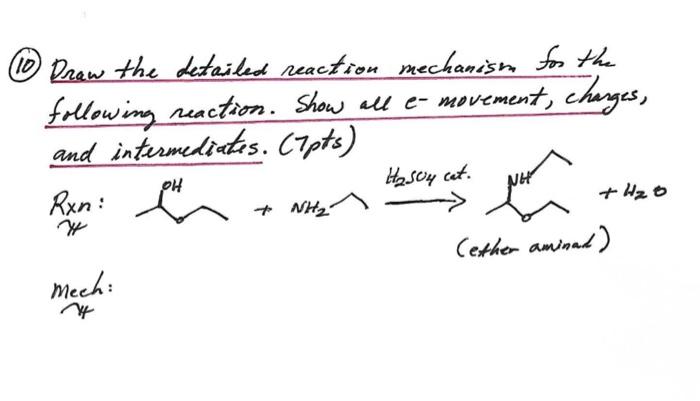 10 Draw the detailed reaction mechanism for the
following reaction. Show all e- movement, charges,
and intermediates. (7pts)
Rxn: OH + NH2 H2SO4 cat. NH + H2O
(ether aminal)
Mech: